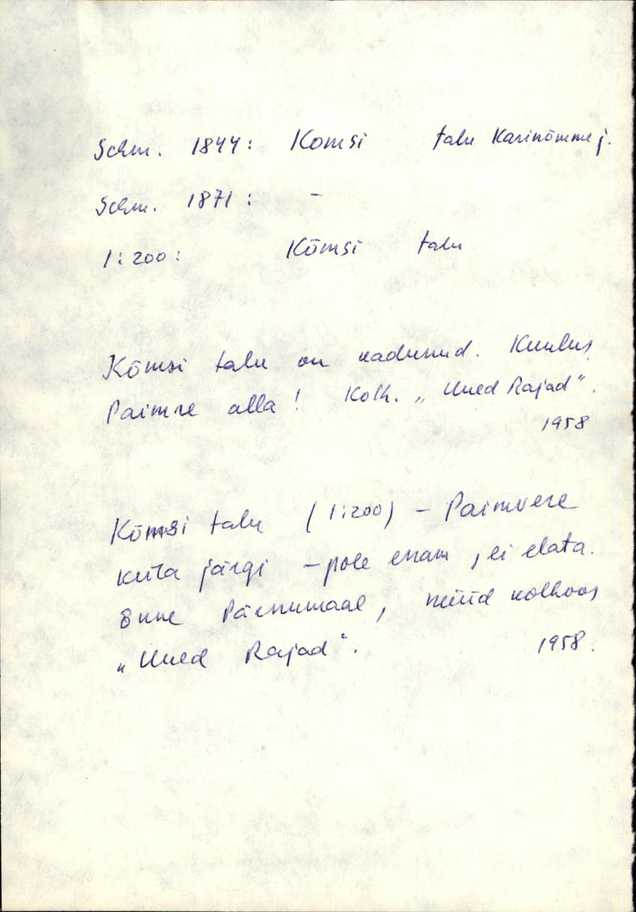 Schm. 1844: Komsi talu Karinõmme j.
Schm. 1871: -
1:200: Kõmsi talu
Kõmsi talu on kadunud. Kuulus
Paimre alla! Kolh. „Uued Rajad".
1958
Kõmsi talu (1:200) - Paimvere
küla järgi - pole enam, ei elata.
Enne Pärnumaal, nüüd kolhoos
„Uued Rajad". 1958.